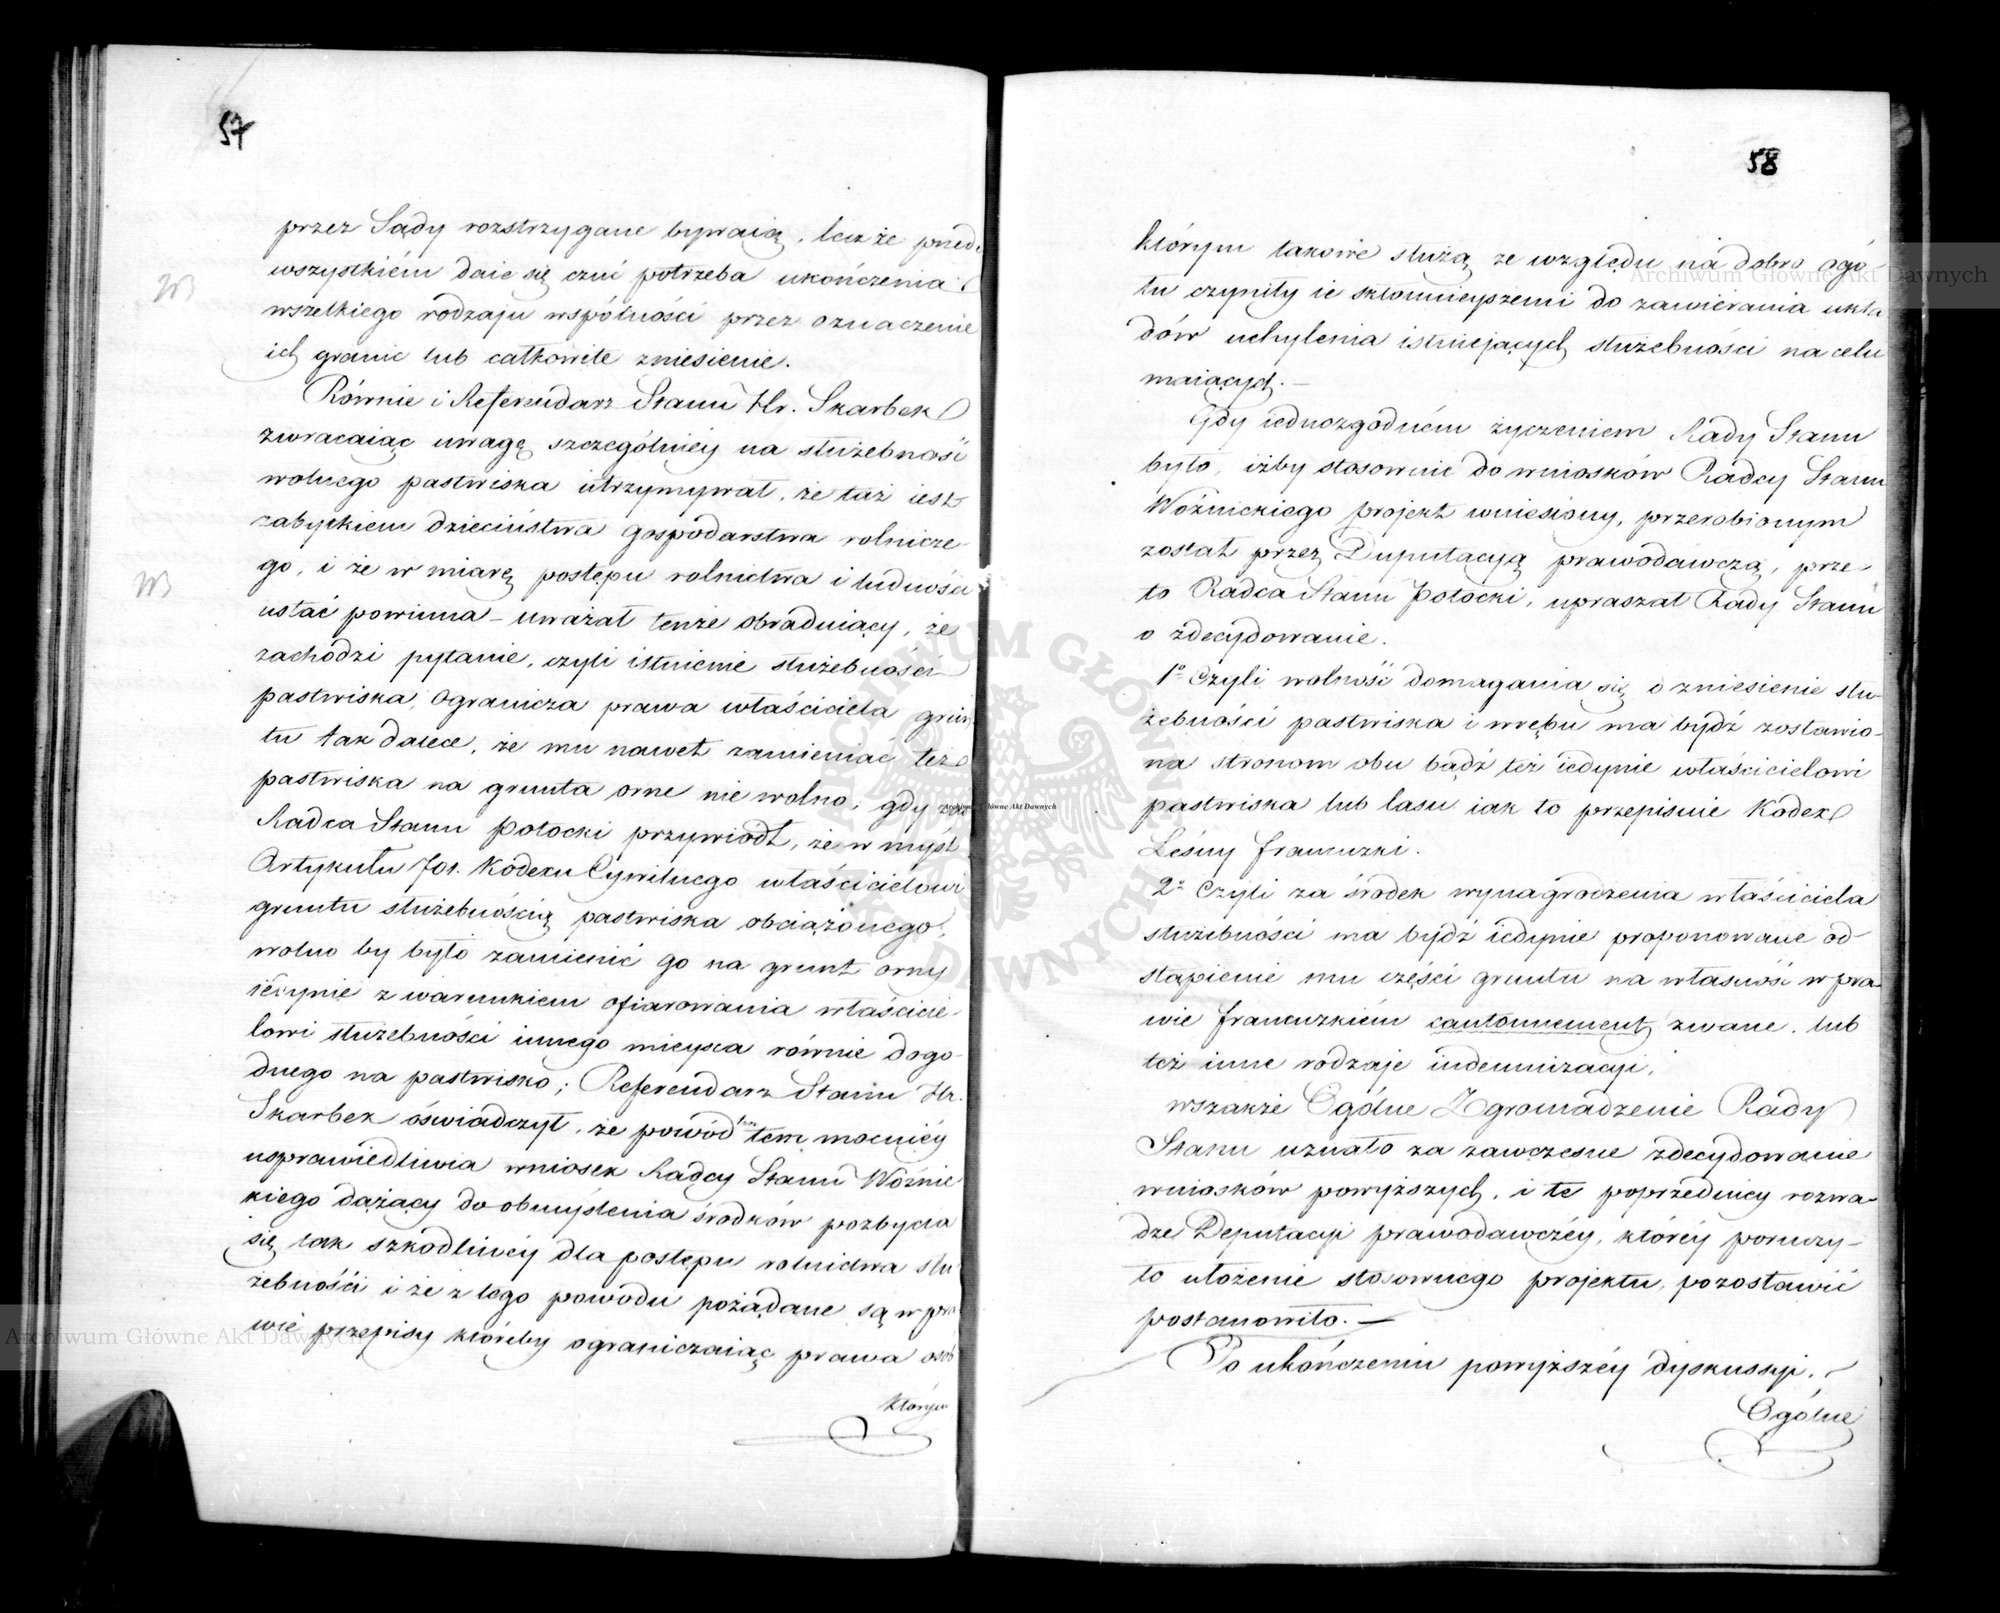 57
przez Sądy rozstrzygane bywaią, lecz że przed
wszystkiém daie się czuć potrzeba ukończenia
wszelkiego rodzaju wspólności przez oznaczenie
ich granic lub całkowite zniesienie.
Równie i Referendarz Stanu Hr. Skarbek
zwracaiąc uwagę szczególniéy na służebność
wolnego pastwiska utrzymywał, że taż iest
zabytkiem dzieciństwa gospodarstwa rolnicze-
go, i że w miarę postępu rolnictwa i ludności
ustać powinna – uważał tenże obraduiący, że
zachodzi pytanie, czyli istnienie służebności
pastwiska, ogranicza prawa właściciela grun
tu tak dalece, że mu nawet zamieniać też
pastwiska na grunta orne nie wolno; gdy zaś
Radca Stanu Potocki przywiódł, że w myśl
Artykułu 701. Kodexu Cywilnego właścicielowi
gruntu służebnością pastwiska obciążonego,
wolno by było zamienić go na grunt orny
iedynie z warunkiem ofiarowania właścicie-
lowi służebności innego mieysca równie dogo-
dnego na pastwisko; Referendarz Stanu Hr.
Skarbek oświadczył, że powód ten tem mocniéy
usprawiedliwia wniosek Radcy Stanu Woźnic
kiego dążący do obmyślenia środków pozbycia
się tak szkodliwéy dla postępu rolnictwa słu
żebności i że z tego powodu pożądane są w pra
wie przepisy któreby ograniczaiąc prawa osób
którym
58
którym takowe służą ze względu na dobro ogó
łu czyniły ie skłonnieyszemi do zawiérania ukła
dów uchylenia istniejących służebności na celu
maiących. –
Gdy iednozgodném życzeniem Rady Stanu
było, iżby stosownie do wniosków Radcy Stanu
Woźnickiego projekt wniesiony, przerobionym
został przez Duputacyą prawodawczą, prze-
to Radca Stanu Potocki, upraszał Rady Stanu
o zdecydowanie.
1º Czyli wolność domagania się o zniesienie słu-
żebności pastwiska i wrębu ma bydź zostawio-
na stronom obu bądź też iedynie właścicielowi
pastwiska lub lasu iak to przepisuie Kodex
Leśny francuzki.
2º Czyli za środek wynagrodzenia właściciela
służebności ma bydź iedynie proponowane od-
stąpienie mu części gruntu na własność w pra-
wie francuzkiém cantonnement zwane, lub
też inne rodzaje indemnizacyi,
wszakże Ogólne Zgromadzenie Rady
Stanu uznało za zawczesne zdecydowanie
wniosków powyższych, i te poprzedniey rozwa-
dze Deputacyi prawodawczéy, któréy poruczy-
ło ułożenie stosownego projektu, pozostawić
postanowiło. –
Po ukończeniu powyższéy dyskussyi. –
Ogólne
Archiwum Główne Akt Dawnych
Archiwum Główne Akt Dawnych
Archiwum Główne Akt Dawnych
ARCHIWUM GŁÓWNE AKT DAWNYCH